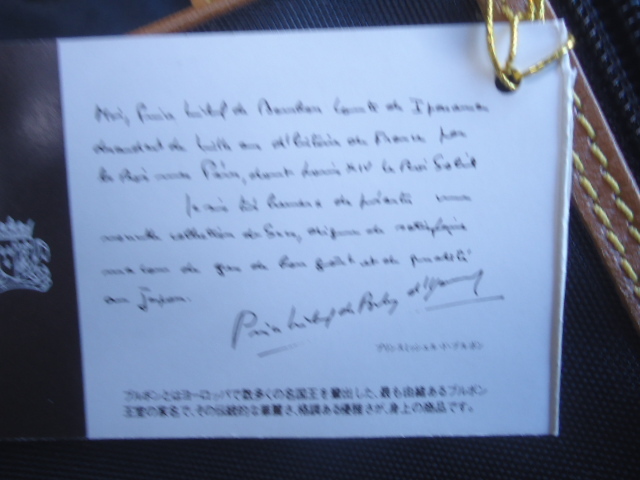 Moi, Prince Michel de Bourbon Comte de
descendant de mille ans d'histoire de France par
les Rois mes Pères, dont Louis XIV le Roi Soleil
Je suis très heureux de présenter une
nouvelle collection de Sacs, de
de gens de bon goût et de qualité
au Japon.
Prince Michel de
プリンス・ミッシェル・ド・ブルボン
ブルボンとはヨーロッパで数多くの名国王を輩出した、最も由緒あるブルボン
王室の家名で、その伝統的な華麗さ、格調ある優雅さが、身上の商品です。